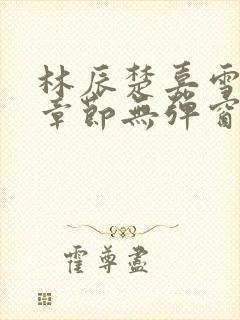 林辰楚嘉雪
章節無彈窗
霍尊盡